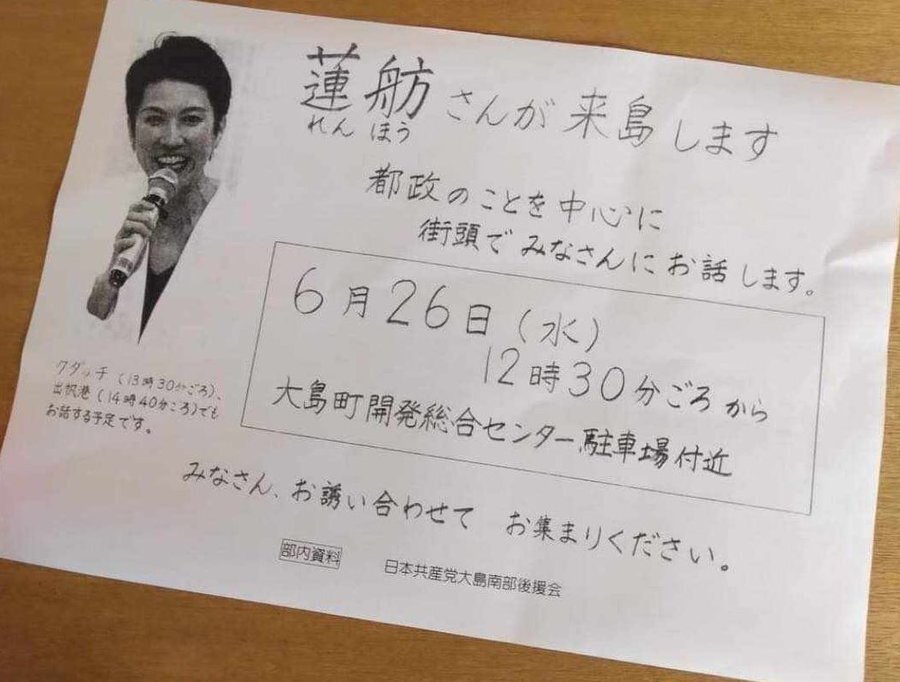 蓮舫さんが来島します
れん ほう
都政のことを中心に
街頭でみなさんにお話します。
6月26日(水)
12時30分ごろから
大島町開発総合センター駐車場付近
クダッチ(13時30分ごろ)、
出帆港(14時40分ころ)でも
お話する予定です。
みなさん、お誘い合わせて お集まりください。
部内資料 日本共産党大島南部後援会